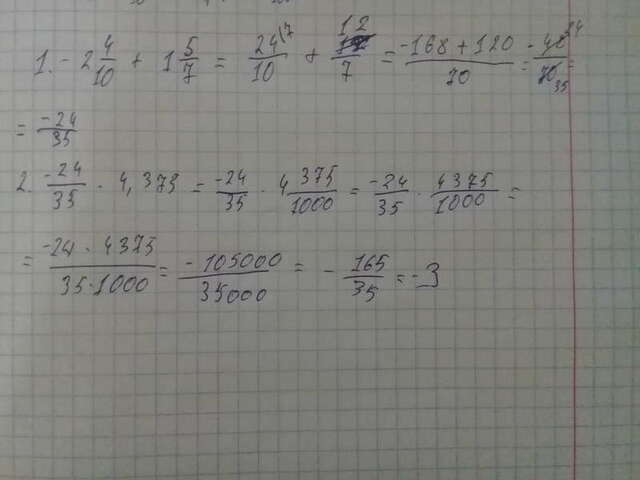 1. - 2 4/10 + 1 5/7 = 24\7/10 + 12/7 = -168 + 120/70 = -48 24/70 35 =
= -24/35
2. -24/35 · 4,375 = -24/35 · 4 375/1000 = -24/35 · 4375/1000 =
= -24 · 4375/35 · 1000 = - 105000/35000 = - 165/35 = - 3